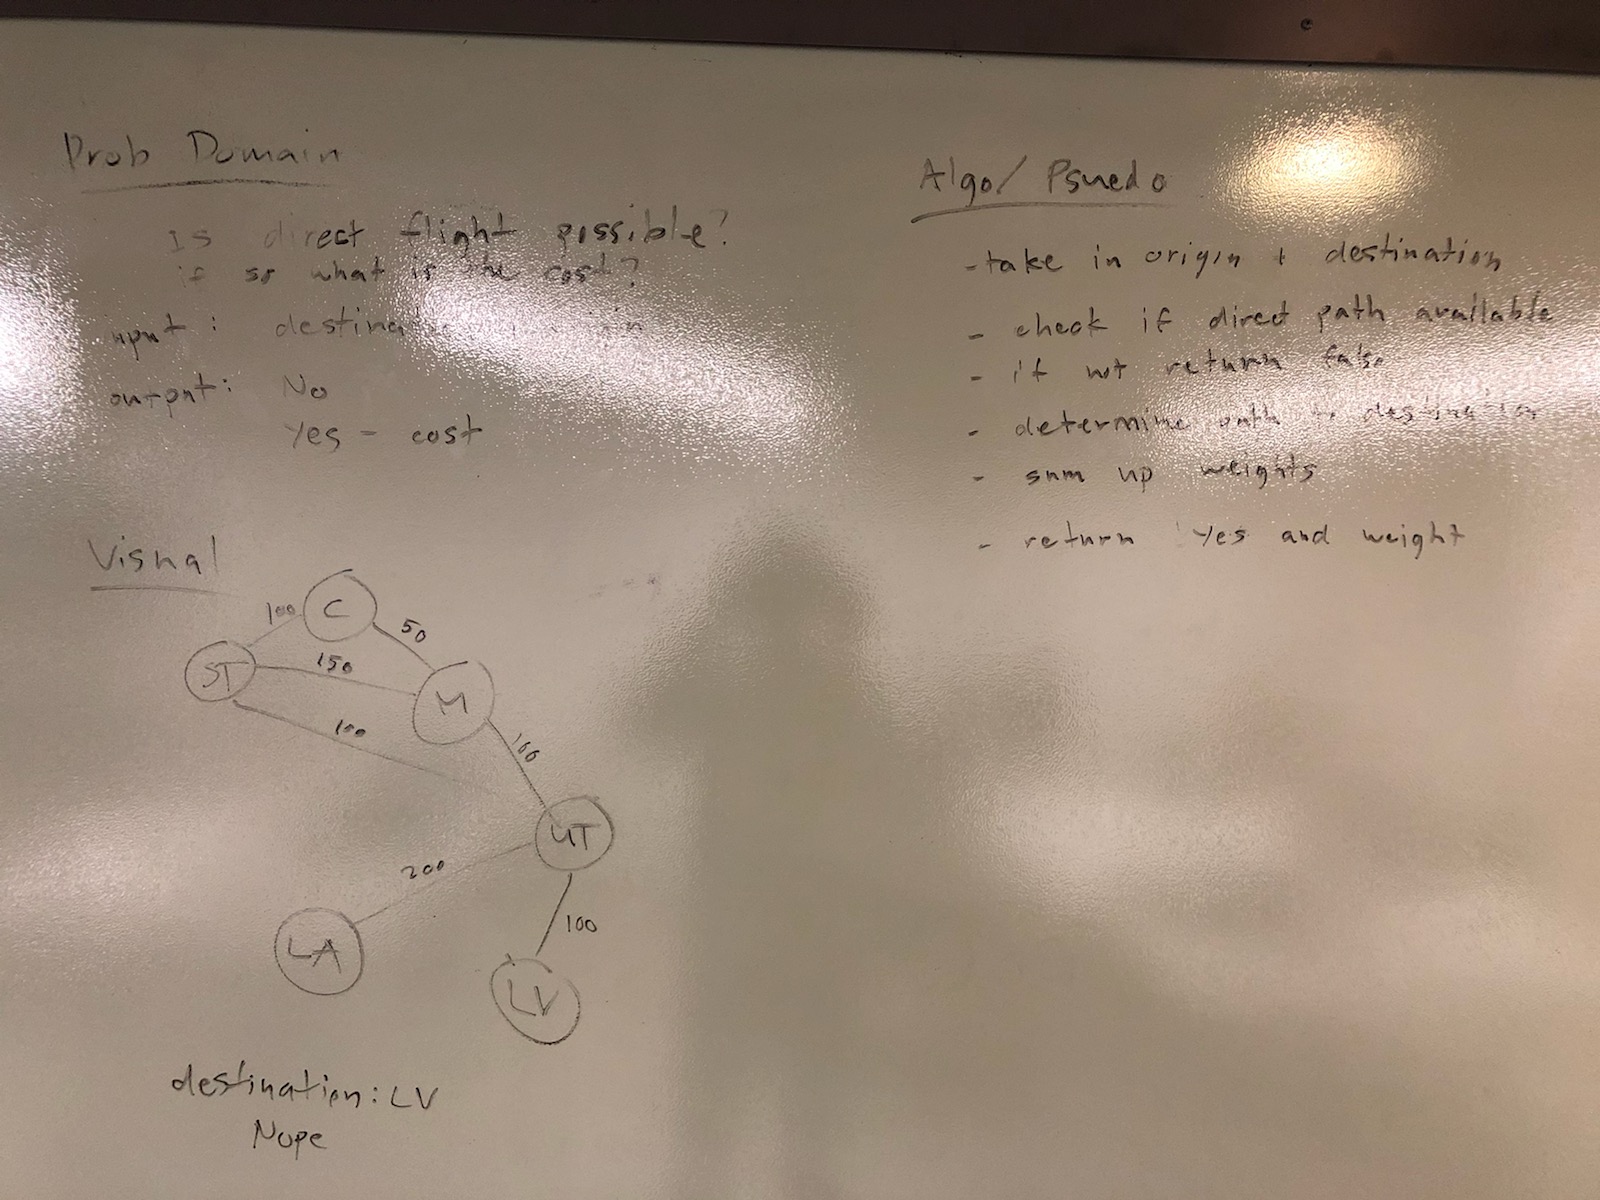 Prob Domain
Is direct flight possible?
if so what is the cost?
input: destination
output: No
Yes - cost
Visual
C
100
50
ST
150
M
100
100
UT
200
LA
100
LV
destination: LV
Nope
Algo/ Psuedo
- take in origin + destination
- check if direct path available
- if not return false
- determine path to destination
- sum up weights
- return Yes and weight